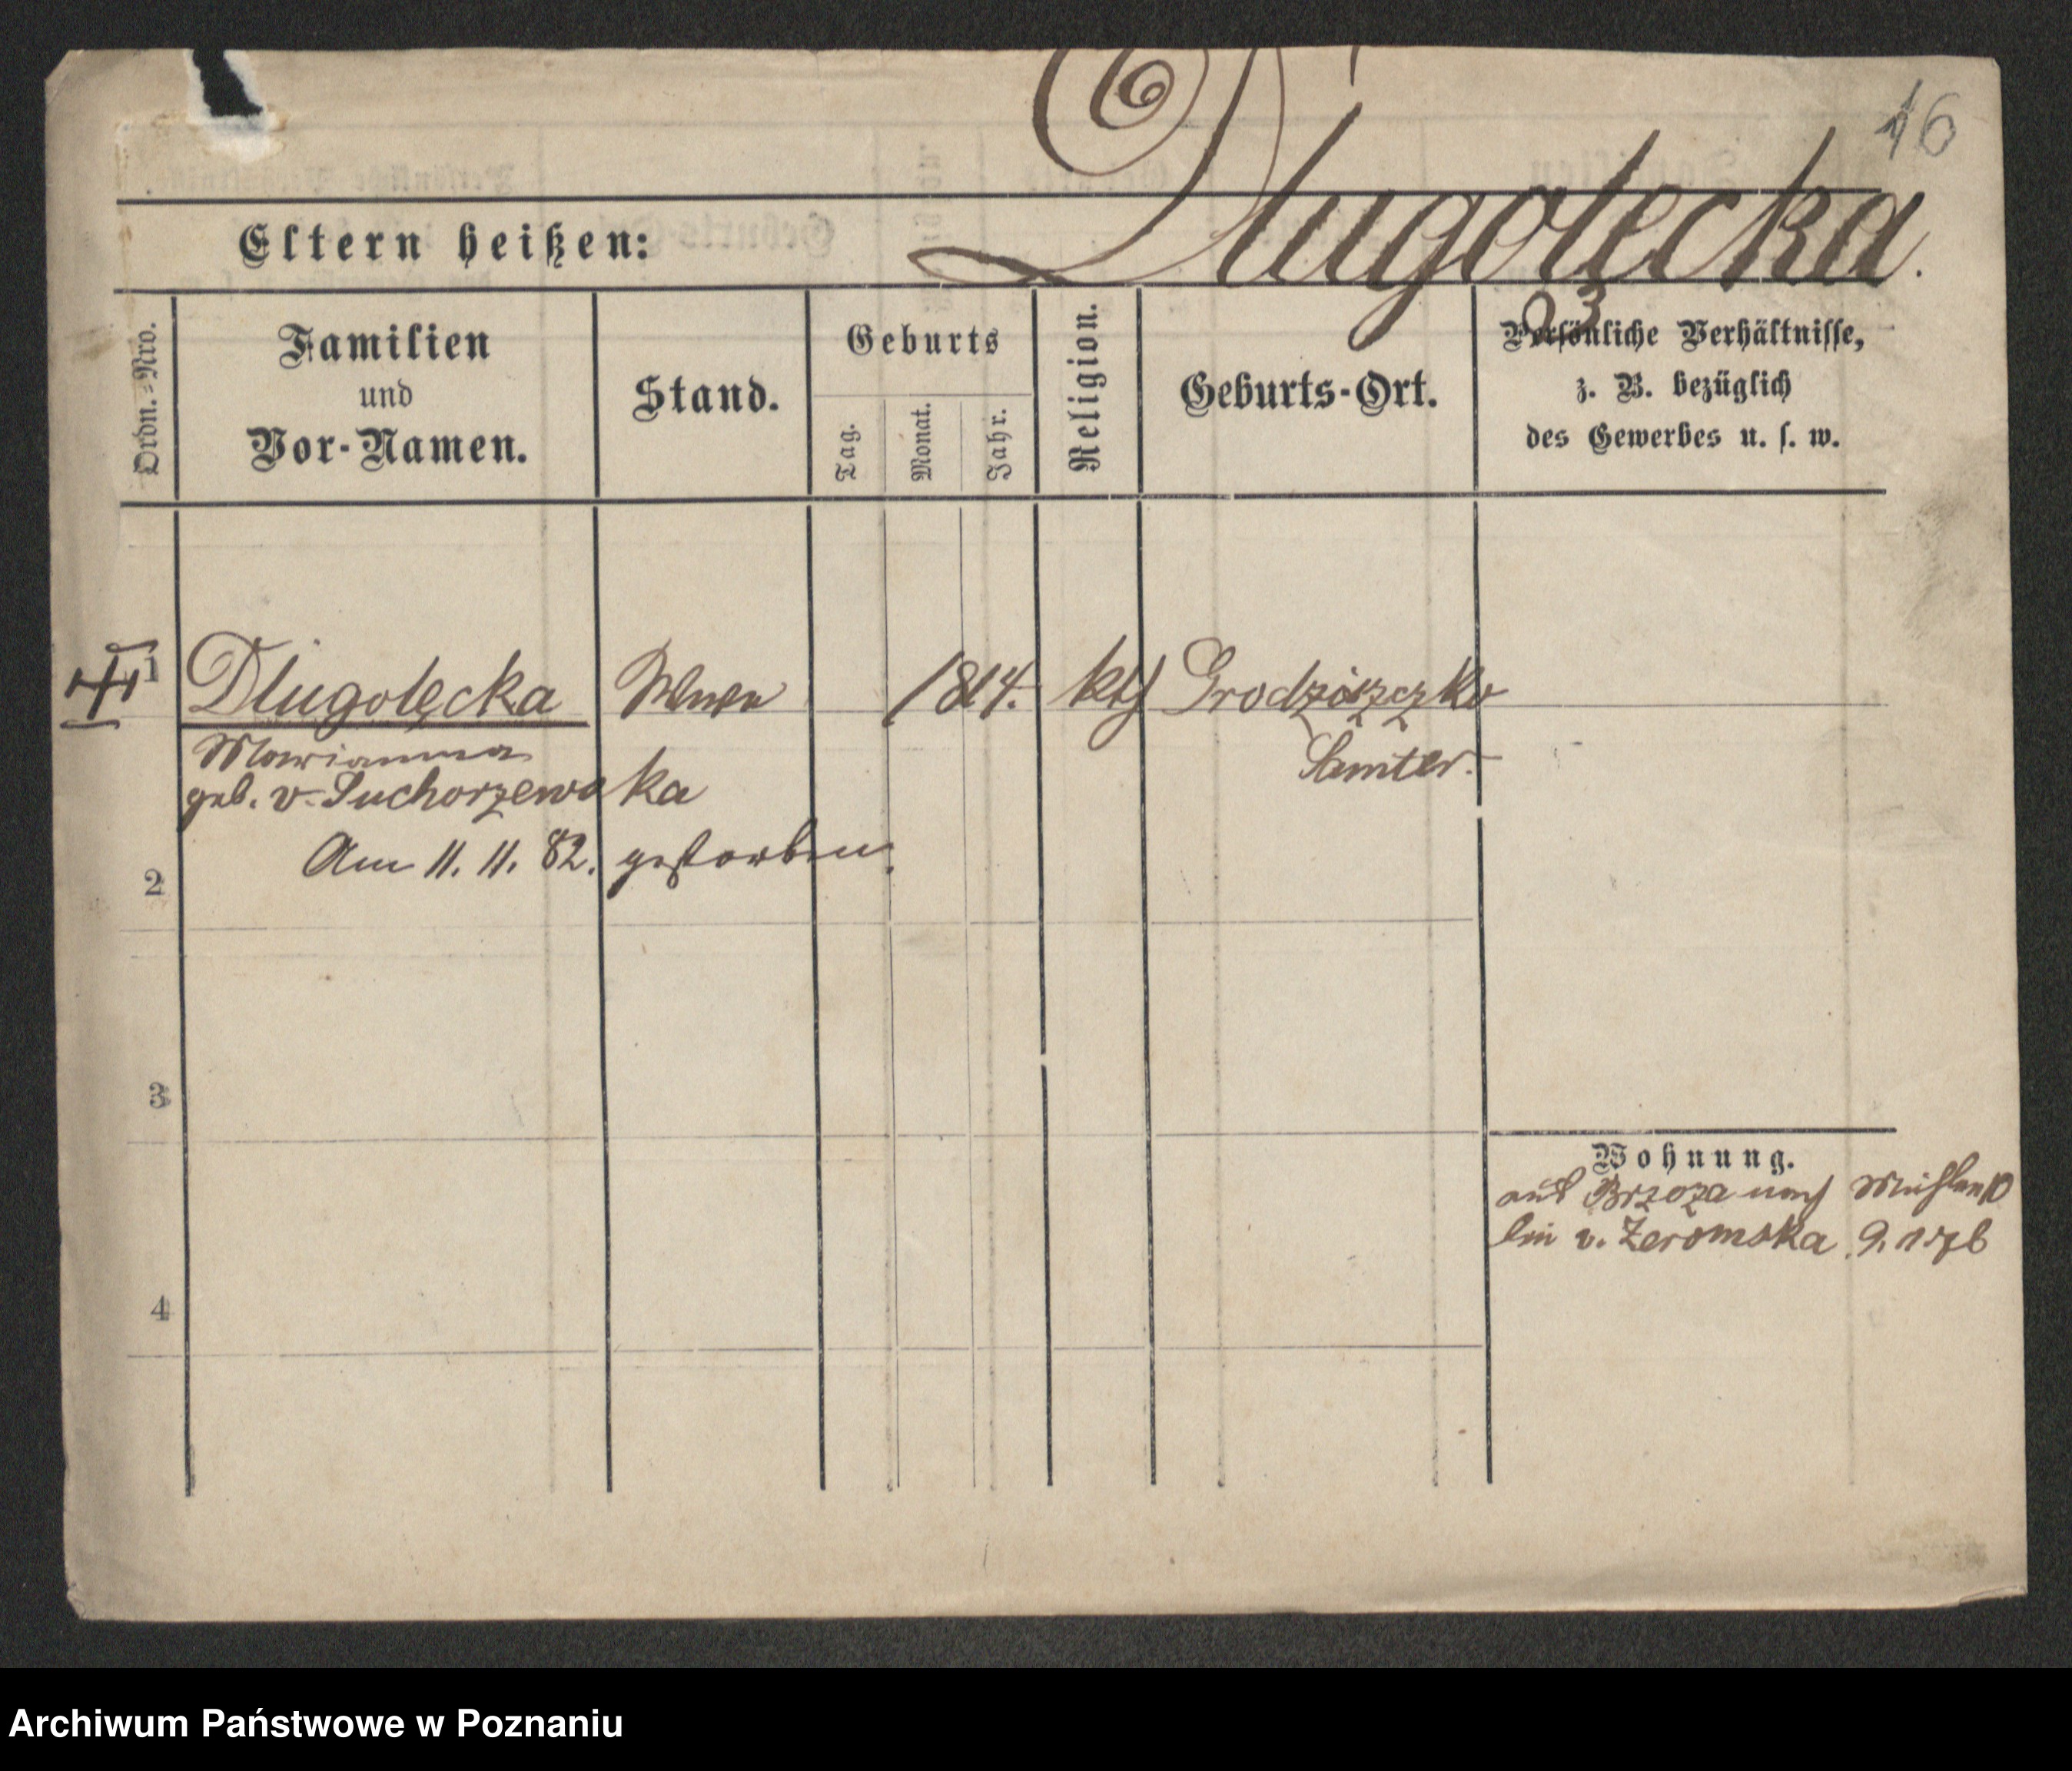 16
Dlugolecka.
Eltern heißen:
Ordn.=Nro.
Familien
und
Vor-Namen.
Stand.
Geburts
Tag.
Monat.
Jahr.
Religion.
Geburts-Ort.
Persönliche Verhältnisse,
z. B. bezüglich
des Gewerbes u. s. w.
1 Dlugolęcka 1814. kth Grodziszczko
Marianna Samter.
geb. v. Suchorzewska
Am 11. 11. 82. gestorben.
2
3
4
Wohnung.
aus Brzoza nach Mühlen 10
bei v. Żeromska 9.
Archiwum Państwowe w Poznaniu